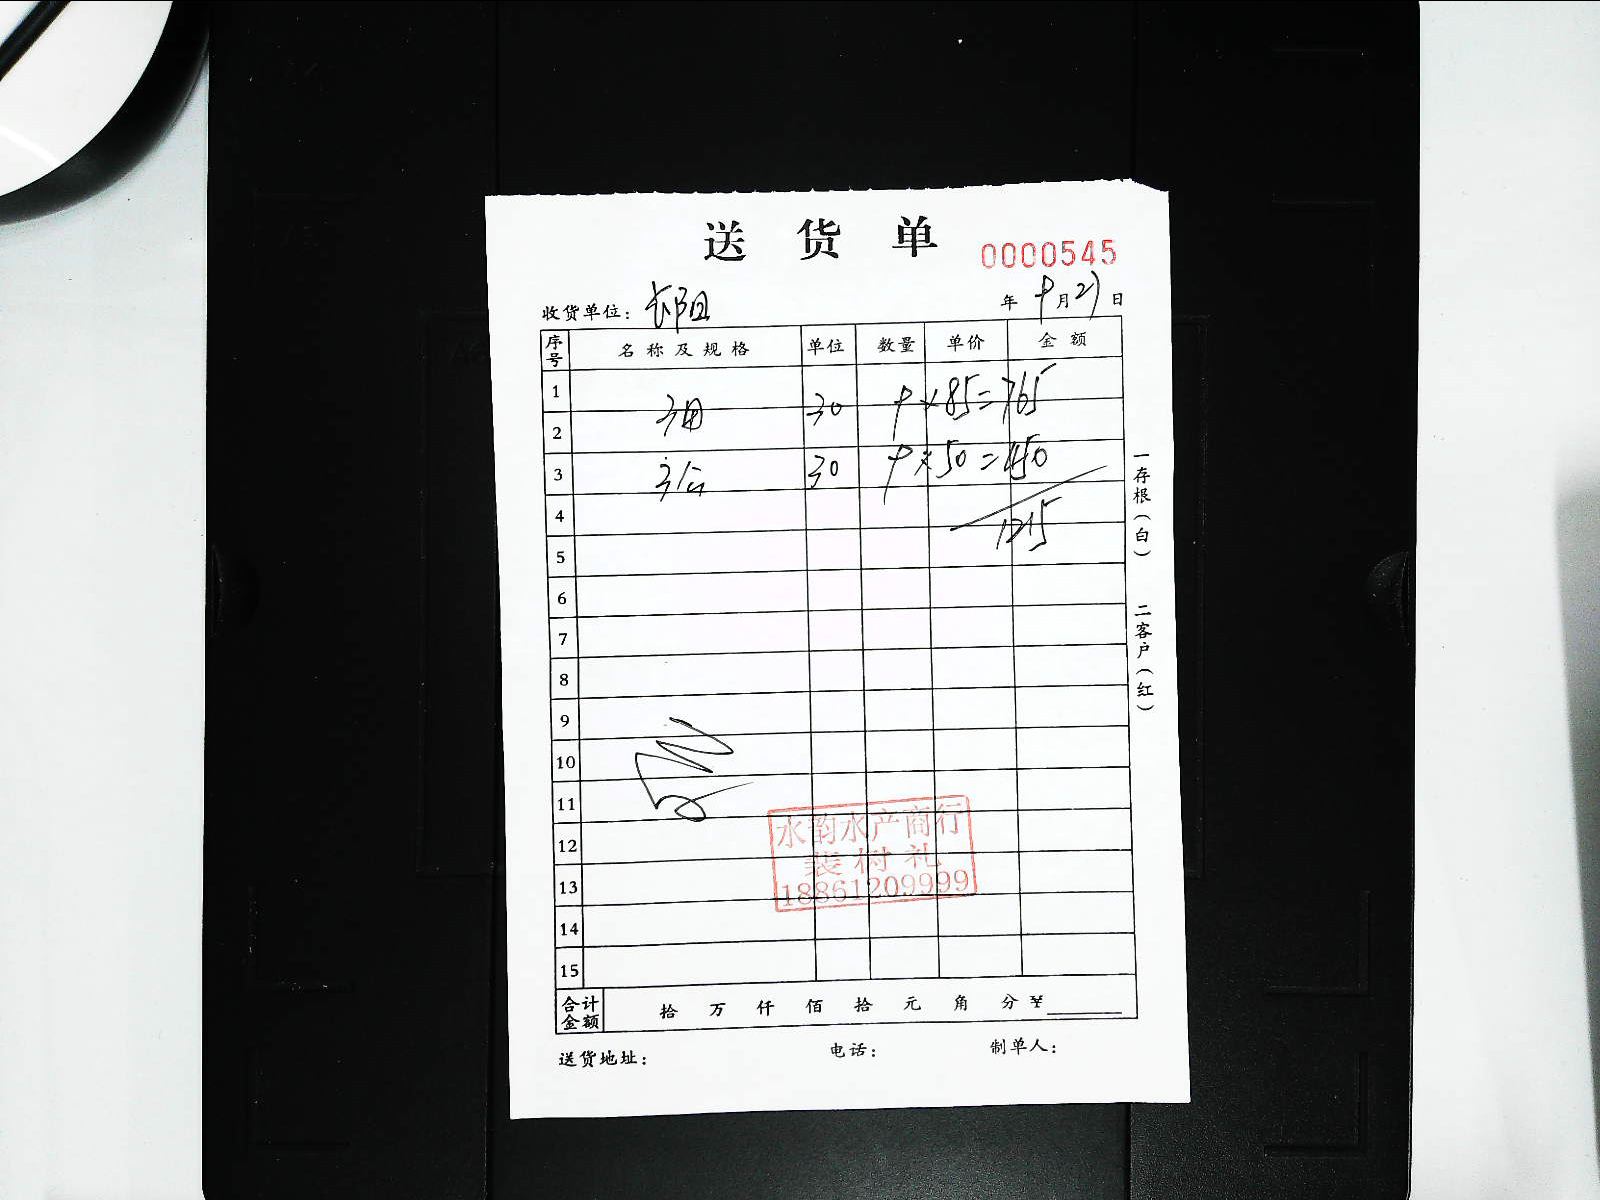 送货单
0000545
收货单位： 年 9月21日
序号 名称及规格 单位 数量 单价 金额
1 30 9×85=765
2
3 30 9×50=450
4 1215
5
6
7
8
9
10
11
12
13
14
15
水韵水产商行
裴树礼
18861209999
合计金额 拾 万 仟 佰 拾 元 角 分 ¥
送货地址： 电话： 制单人：
一存根（白） 二客户（红）